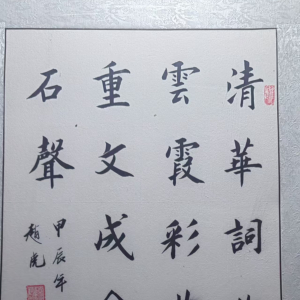 清華詞
雲霞彩
重文成
石聲
甲辰年
趙